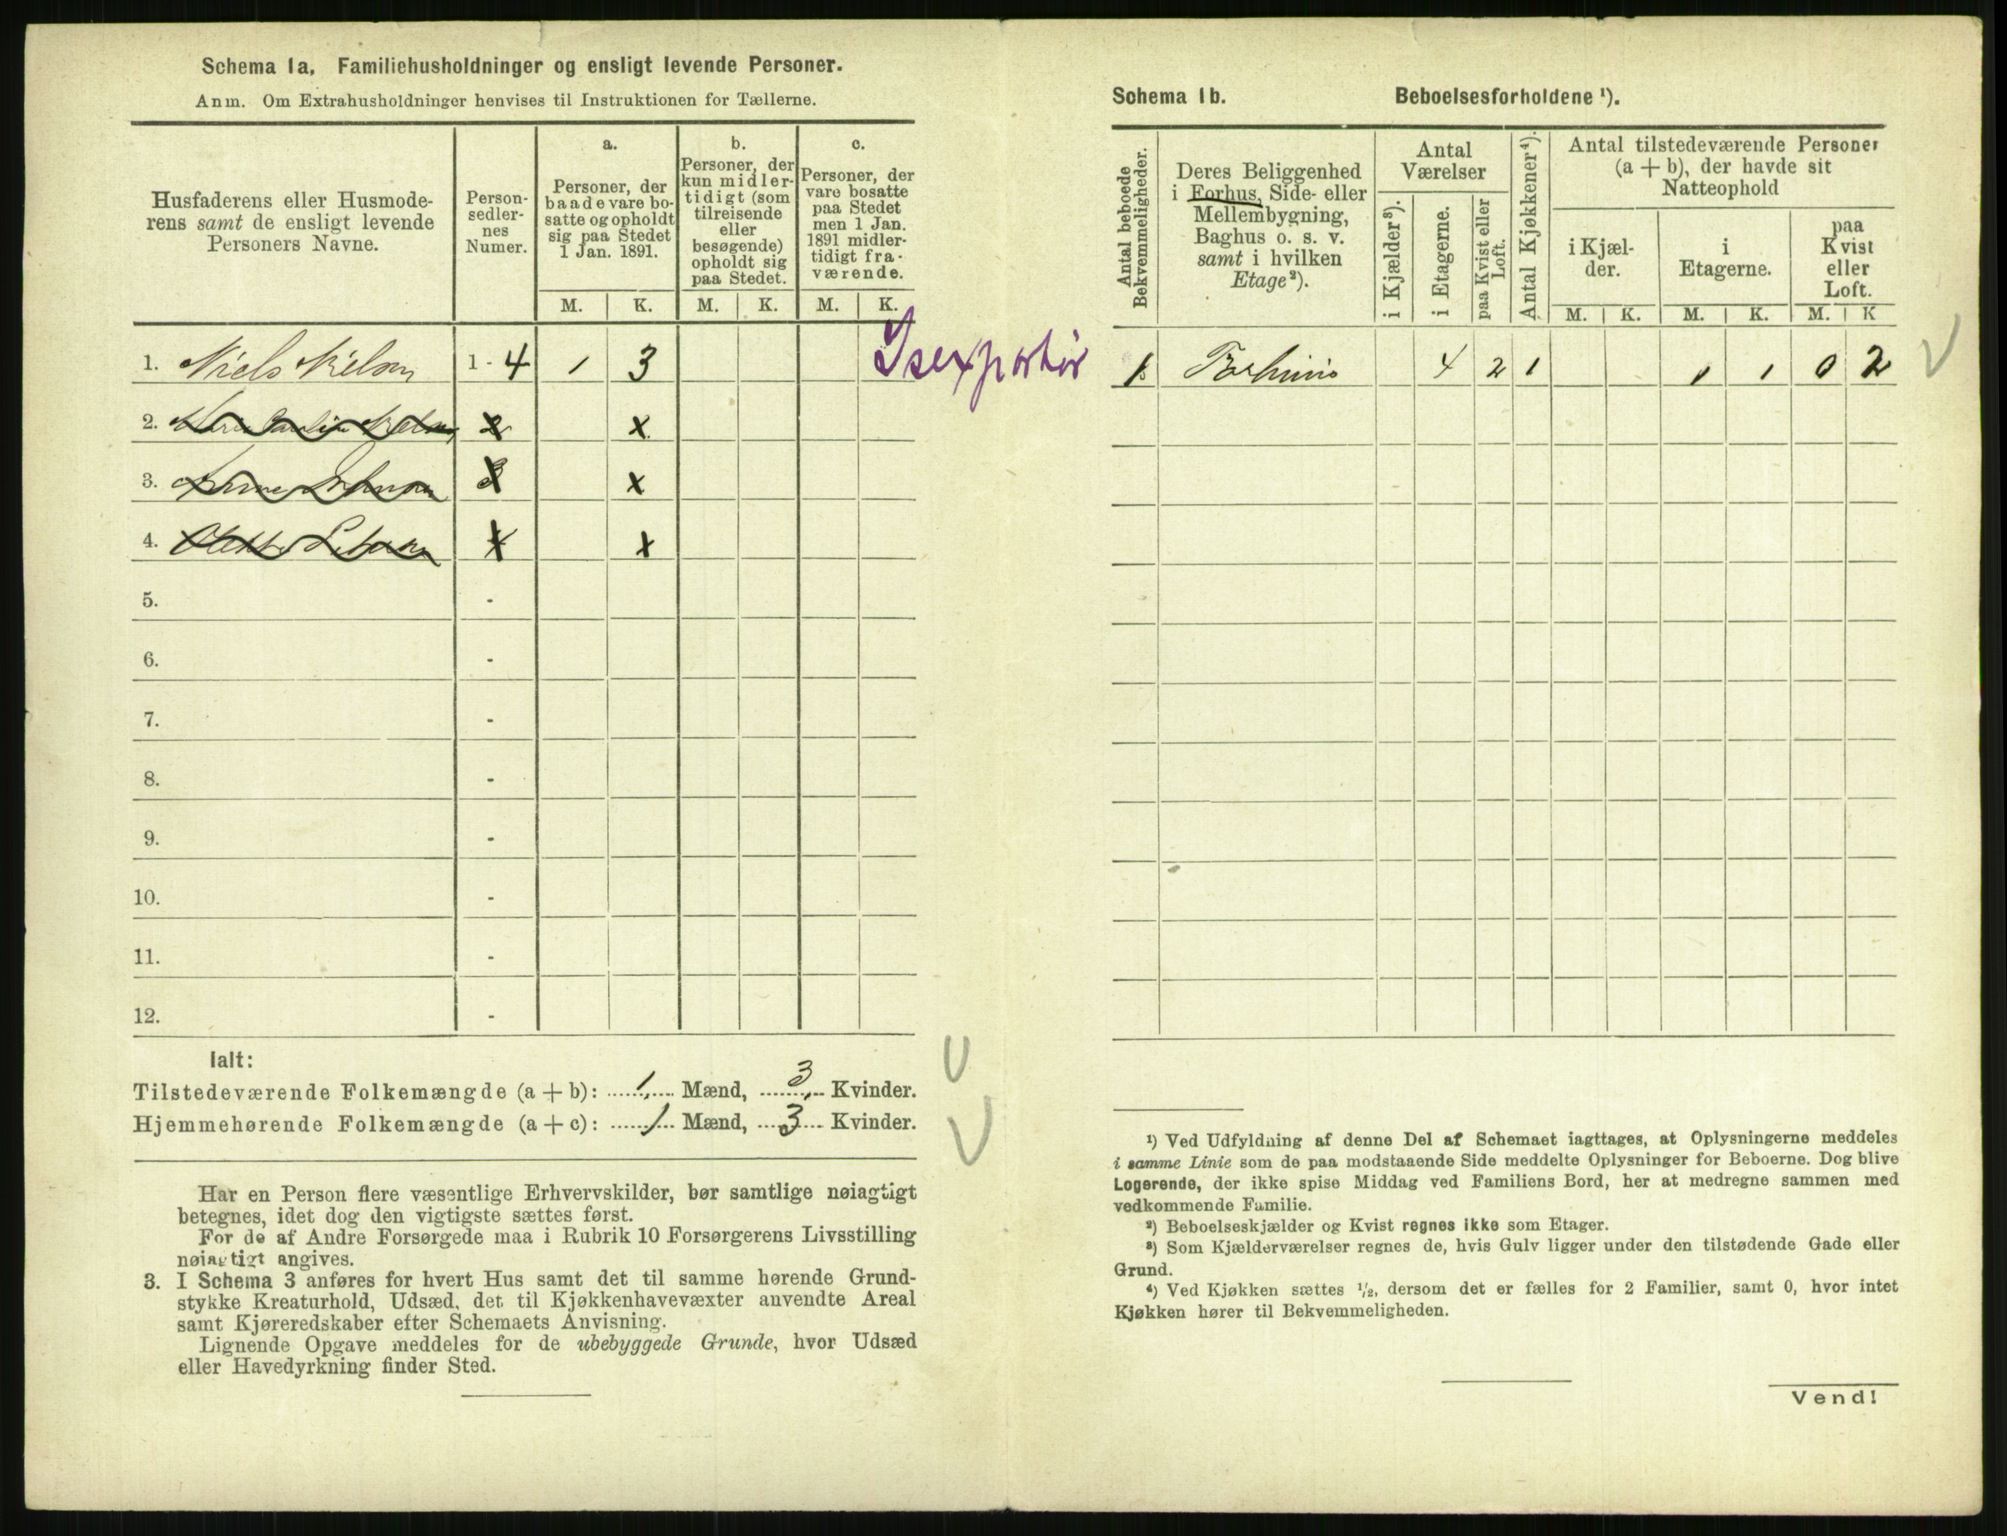 Schema 1a. Familiehusholdninger og ensligt levende Personer.
Anm. Om Extrahusholdninger henvises til Instruktionen for Tællerne.
Husfaderens eller Husmoderens samt de ensligt levende Personers Navne.
Personsedlernes Numer.
a.
Personer, der baade vare bosatte og opholdt sig paa Stedet 1 Jan. 1891.
b.
Personer, der kun midlertidigt (som tilreisende eller besøgende) opholdt sig paa Stedet.
c.
Personer, der vare bosatte paa Stedet men 1 Jan. 1891 midlertidigt fraværende.
M. K. M. K. M. K.
1. Niels Nielsen 1 - 4 1 3
Isexportør
2. 2 x
3. 3 x
4. 4 x
5. -
6. -
7. -
8. -
9. -
10. -
11. -
12. -
Ialt:
Tilstedeværende Folkemængde (a + b): 1 Mænd, 3 Kvinder.
Hjemmehørende Folkemængde (a + c): 1 Mænd, 3 Kvinder.
Har en Person flere væsentlige Erhvervskilder, bør samtlige nøiagtigt
betegnes, idet dog den vigtigste sættes først.
For de af Andre Forsørgede maa i Rubrik 10 Forsørgerens Livsstilling
nøiagtigt angives.
3. I Schema 3 anføres for hvert Hus samt det til samme hørende Grund-
stykke Kreaturhold, Udsæd, det til Kjøkkenhavevæxter anvendte Areal
samt Kjøreredskaber efter Schemaets Anvisning.
Lignende Opgave meddeles for de ubebyggede Grunde, hvor Udsæd
eller Havedyrkning finder Sted.
Schema 1b. Beboelsesforholdene ¹).
Antal beboede Bekvemmeligheder.
Deres Beliggenhed i Forhus, Side- eller Mellembygning, Baghus o. s. v. samt i hvilken Etage²).
Antal Værelser
i Kjælder³).
i Etagerne.
paa Kvist eller Loft.
Antal Kjøkkener⁴).
Antal tilstedeværende Personer (a + b), der havde sit Natteophold
i Kjælder.
i Etagerne.
paa Kvist eller Loft.
M. K. M. K. M. K
1 4 2 1 1 1 0 2
¹) Ved Udfyldning af denne Del af Schemaet iagttages, at Oplysningerne meddeles
i samme Linie som de paa modstaaende Side meddelte Oplysninger for Beboerne. Dog blive
Logerende, der ikke spise Middag ved Familiens Bord, her at medregne sammen med
vedkommende Familie.
²) Beboelseskjælder og Kvist regnes ikke som Etager.
³) Som Kjælderværelser regnes de, hvis Gulv ligger under den tilstødende Gade eller
Grund.
⁴) Ved Kjøkken sættes ½, dersom det er fælles for 2 Familier, samt 0, hvor intet
Kjøkken hører til Bekvemmeligheden.
Vend!